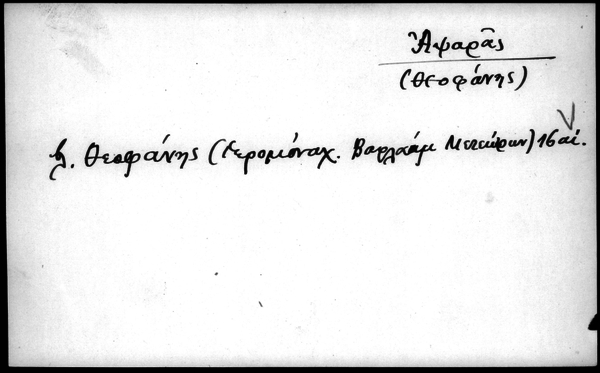 Ἀψαρᾶς
(Θεοφάνης)
βλ. Θεοφάνης (ἱερομόναχ. Βαρλαάμ Μετεώρων) 16 αἰ.